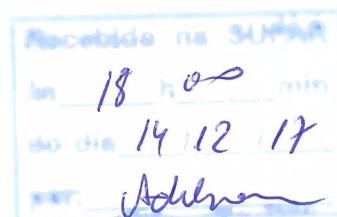 Recebido na SUPAR
às 18 h 00 min
do dia 14 / 12 / 17
por: